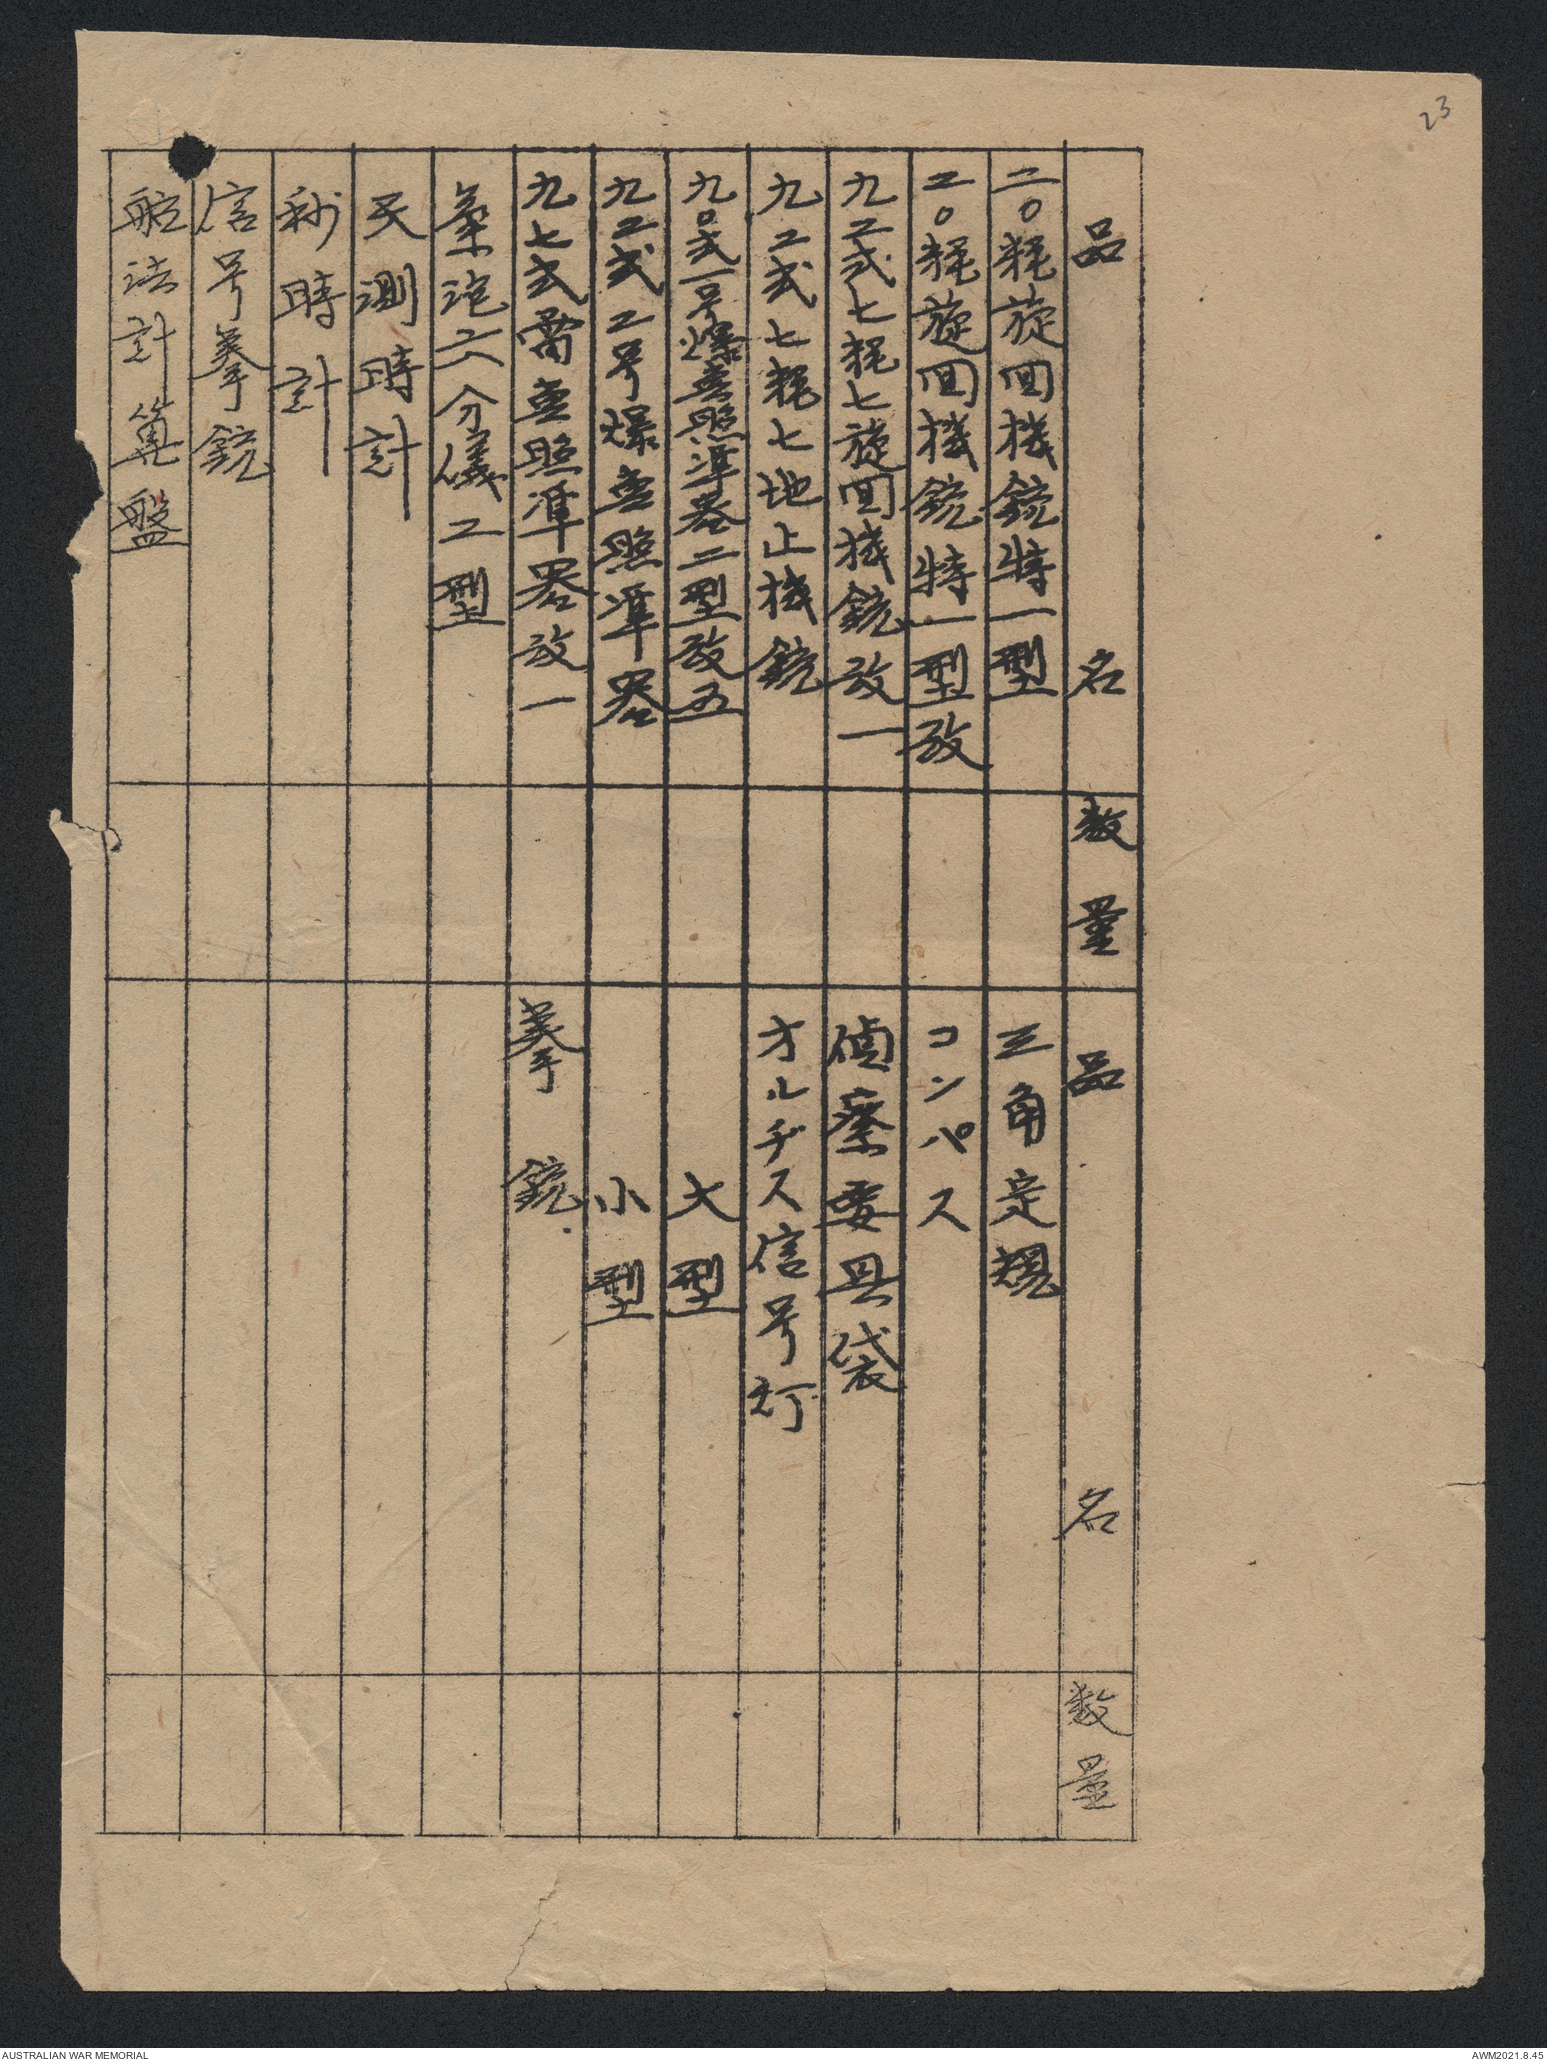 23
品名
数量
品名
数量
二〇粍旋回機銃特一型
三角定規
二〇粍旋回機銃特一型改
コンパス
九二式七粍七旋回機銃改一
偵察要具袋
九二式七粍七地上機銃
オルヂス信号灯
九〇式一号爆撃照準器二型改五
大型
九二式二号爆撃照準器
小型
九七式雷撃照準器改一
拳銃
気泡六分儀二型
天測時計
秒時計
信号拳銃
航法計算盤
AUSTRALIAN WAR MEMORIAL
AWM2021.8.45